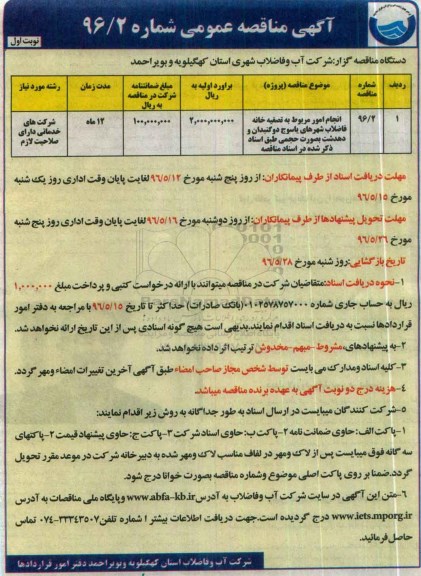 آگهی مناقصه عمومی شماره ۹۶/۲
نوبت اول
دستگاه مناقصه گزار: شرکت آب و فاضلاب شهری استان کهگیلویه و بویراحمد
ردیف شماره مناقصه موضوع مناقصه (پروژه) براورد اولیه به ریال مبلغ ضمانتنامه شرکت در مناقصه به ریال مدت زمان رشته مورد نیاز
۱ ۹۶/۲ انجام امور مربوط به تصفیه خانه فاضلاب شهرهای یاسوج دوگنبدان و دهدشت بصورت حجمی طبق اسناد ذکر شده در اسناد مناقصه ۲,۰۰۰,۰۰۰,۰۰۰ ۱۰۰,۰۰۰,۰۰۰ ۱۲ ماه شرکت های خدماتی دارای صلاحیت لازم
مهلت دریافت اسناد از طرف پیمانکاران: از روز پنج شنبه مورخ ۹۶/۵/۱۲ لغایت پایان وقت اداری روز یک شنبه
مورخ ۹۶/۵/۱۵
مهلت تحویل پیشنهادها از طرف پیمانکاران: از روز دوشنبه مورخ ۹۶/۵/۱۶ لغایت پایان وقت اداری روز پنج شنبه
مورخ ۹۶/۵/۲۶
تاریخ بازگشایی: روز شنبه مورخ ۹۶/۵/۲۸
۱-نحوه دریافت اسناد: متقاضیان شرکت در مناقصه میتوانند با ارائه درخواست کتبی و پرداخت مبلغ ۱,۰۰۰,۰۰۰
ریال به حساب جاری شماره ۰۱۰۲۵۷۸۷۵۷۰۰۰ (بانک صادرات) حداکثر تا تاریخ ۹۶/۵/۱۵ با مراجعه به دفتر امور
قراردادها نسبت به دریافت اسناد اقدام نمایند.بدیهی است هیچ گونه اسنادی پس از این تاریخ ارائه نخواهد شد.
۲-به پیشنهادهای، مشروط-مبهم-مخدوش ترتیب اثر داده نخواهد شد.
۳-کلیه اسناد ومدارک می بایست توسط شخص مجاز صاحب امضاء طبق آگهی آخرین تغییرات امضاء ومهر گردد.
۴-هزینه درج دو نوبت آگهی به عهده برنده مناقصه میباشد.
۵-شرکت کنندگان میبایست در ارسال اسناد به طور جداگانه به روش زیر اقدام نمایند:
۱-پاکت الف: حاوی ضمانت نامه ۲-پاکت ب: حاوی اسناد شرکت ۳-پاکت ج: حاوی پیشنهاد قیمت ۲-پاکتهای
سه گانه فوق میبایست پس از لاک ومهر در لفاف مناسب لاک ومهر شده به دبیرخانه شرکت در موعد مقرر تحویل
گردد.ضمنا بر روی پاکت اصلی موضوع وشماره مناقصه بصورت خوانا درج شود.
۶-متن این آگهی در سایت شرکت آب وفاضلاب به آدرس www.abfa-kb.ir وپایگاه ملی مناقصات به آدرس
www.iets.mporg.ir درج گردیده است.جهت دریافت اطلاعات بیشتر ا شماره تلفن ۰۷۴-۳۳۳۴۳۵۰۷ تماس
حاصل فرمائید.
شرکت آب وفاضلاب استان کهگیلویه وبویراحمد دفتر امور قراردادها